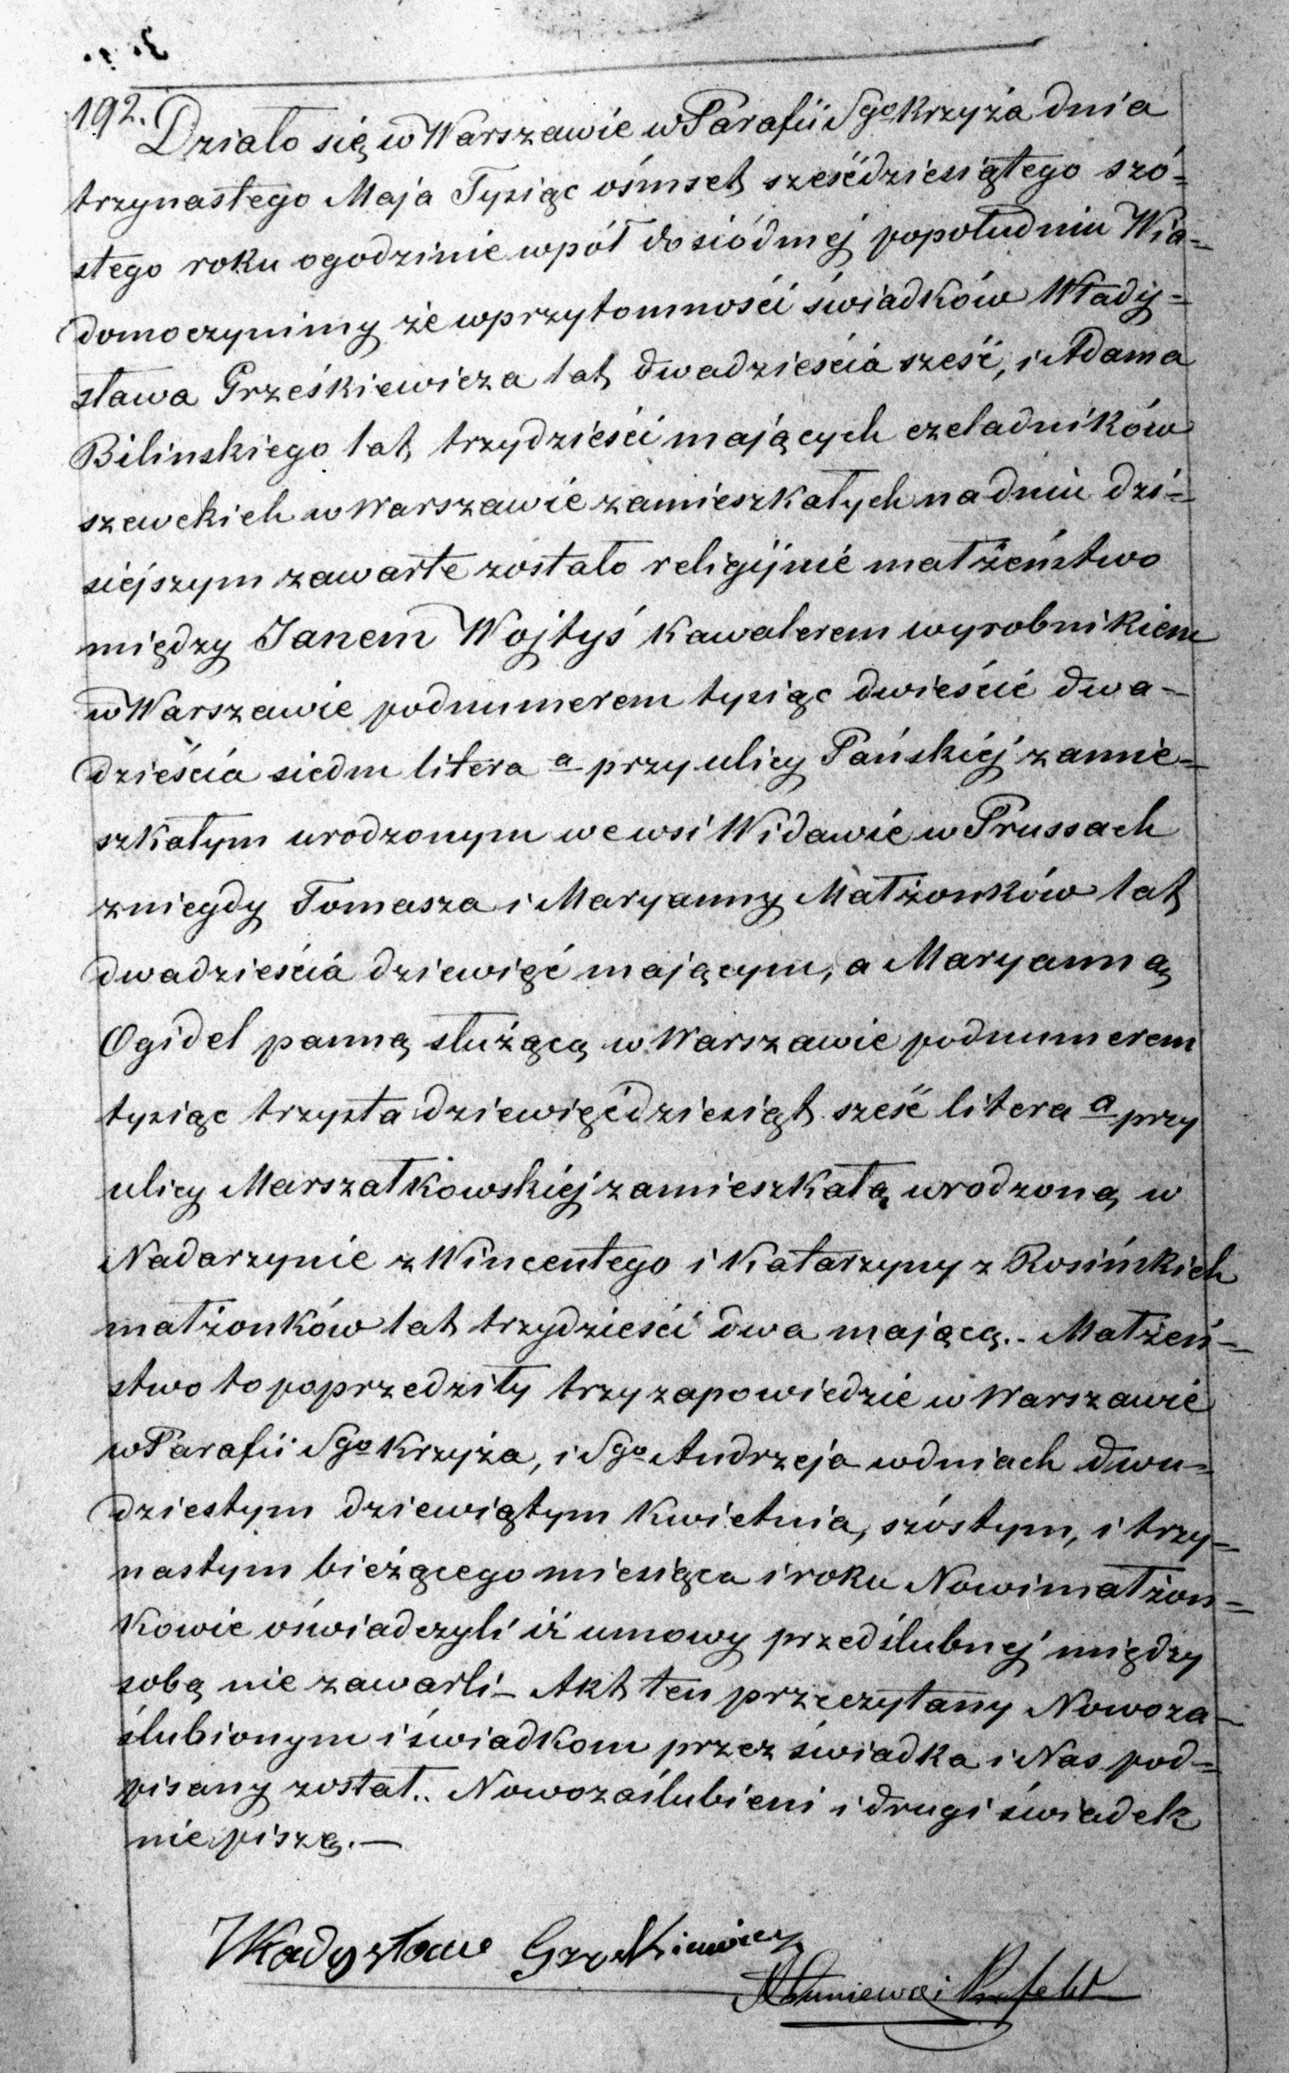 192.
Działo się w Warszawie w Parafii Sgo Krzyża dnia
trzynastego Maja Tysiąc ośmset sześćdziesiątego szó=
stego roku o godzinie wpół do siódmej popołudniu Wia=
domo czynimy że wprzytomności świadków Włady=
sława Grześkiewicza lat dwadzieścia sześć, i Adama
Bilinskiego lat trzydzieści mających czeladników
szewckich w Warszawie zamieszkałych na dniu dzi=
siejszym zawarte zostało religijnie małżeństwo
między Janem Wojtyś kawalerem wyrobnikiem
w Warszawie pod numerem tysiąc dwieście dwa=
dzieścia siedm litera a przy ulicy Pańskiéj zamie=
szkałym urodzonym we wsi Widawie w Prussach
z niegdy Tomasza i Maryanny Małżonków lat
dwadzieścia dziewięć mającym, a Maryanną
Ogidel panną służącą w Warszawie pod numerem
tysiąc trzysta dziewięćdziesiąt sześć litera a przy
ulicy Marszałkowskiéj zamieszkałą urodzoną w
Nadarzynie z Wincentego i Katarzyny z Rosińskich
małżonków lat trzydzieści dwa mającą.. Małżeń=
stwo to poprzedziły trzy zapowiedzie w Warszawie
w Parafii Sgo Krzyża, i Sgo Andrzeja w dniach dwu=
dziestym dziewiątym Kwietnia, szóstym, i trzy=
nastym bieżącego miesiąca i roku Nowi małżon=
kowie oświadczyli iż umowy przedślubnej między
sobą nie zawarli – Akt ten przeczytany Nowoza=
ślubionym i świadkom przez świadka i Nas pod=
pisany został.. Nowozaślubieni i drugi świadek
nie piszą.—
Władysław Grześkiewicz
Prefekt